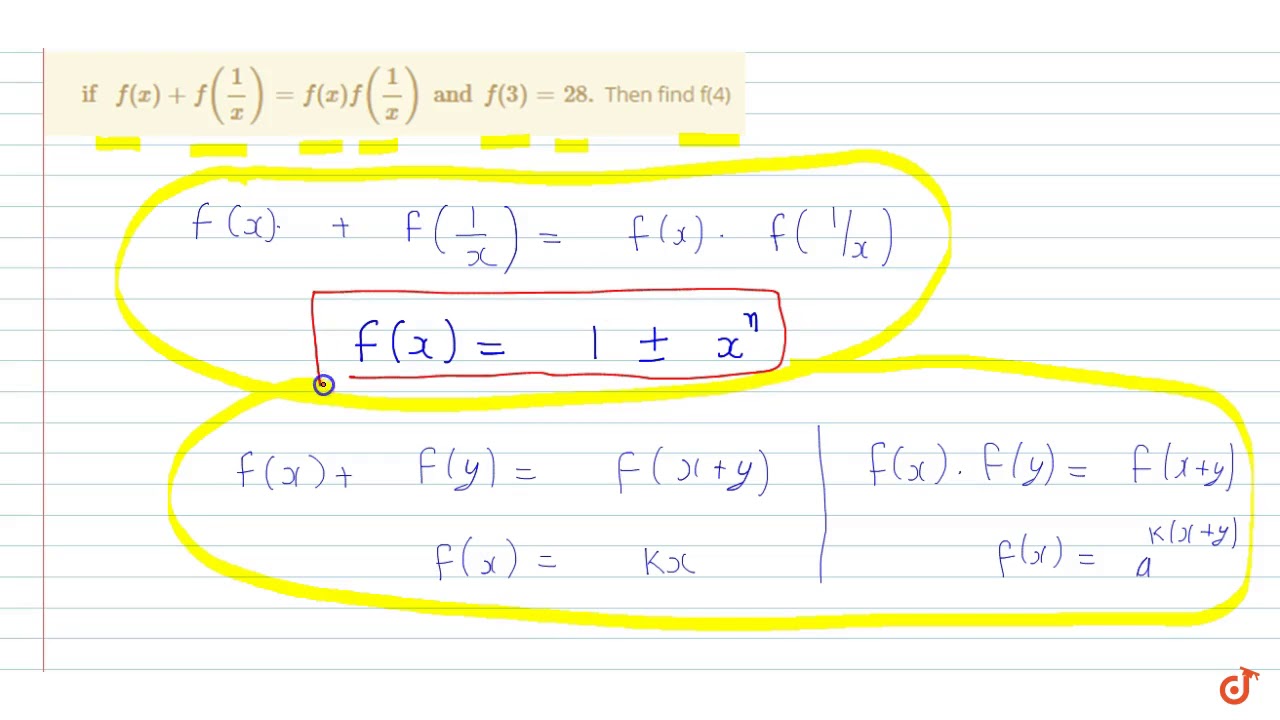 if f(x) + f(1/x) = f(x)f(1/x) and f(3) = 28. Then find f(4)
f(x). + f(1/x) = f(x) . f(1/x)
f(x) = 1 ± xⁿ
f(x) + f(y) = f(x+y)
f(x) = kx
f(x) . f(y) = f(x+y)
f(x) = a^k(x+y)